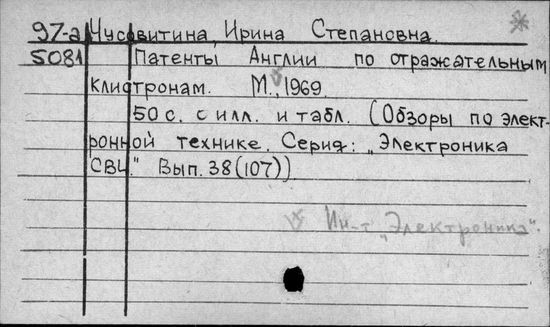 97-а Чусовитина, Ирина Степановна.
5081 Патенты Англии по отражательным
клистронам. М., 1969.
50 с. с илл. и табл. (Обзоры по элект-
ронной технике. Серия: „Электроника
СВЧ." Вып. 38(107))
Ин-т „Электроника".